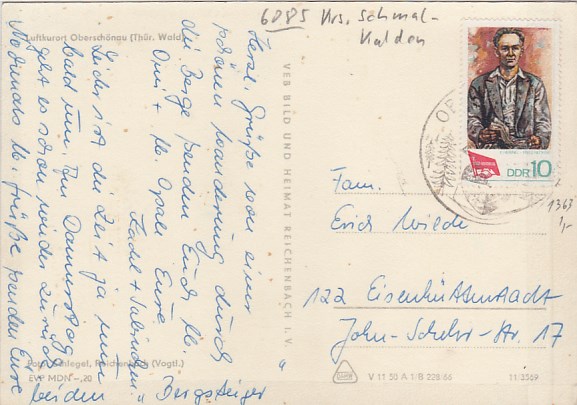 6085 Krs. Schmal-
kalden
Luftkurort Oberschönau (Thür. Wald)
Herzl. Grüße von einer
schönen Wanderung durch
die Berge senden Euch lb.
Omi + lb. Opa Eure
Leider ist die Zeit ja nun
bald um. Am Donnerstag
geht es schon wieder zurück.
Nochmals lb. Grüße senden Eure
beiden "Bergsteiger"
VEB BILD UND HEIMAT REICHENBACH I. V.
Foto: Schlegel, Reichenbach (Vogtl.)
EVP MDN -,20
DDR 10
1363
1,-
Fam.
Erich Wilde
122 Eisenhüttenstadt
John-Schehr-Str. 17
V 11 50 A 1/B 228/68
11/3569